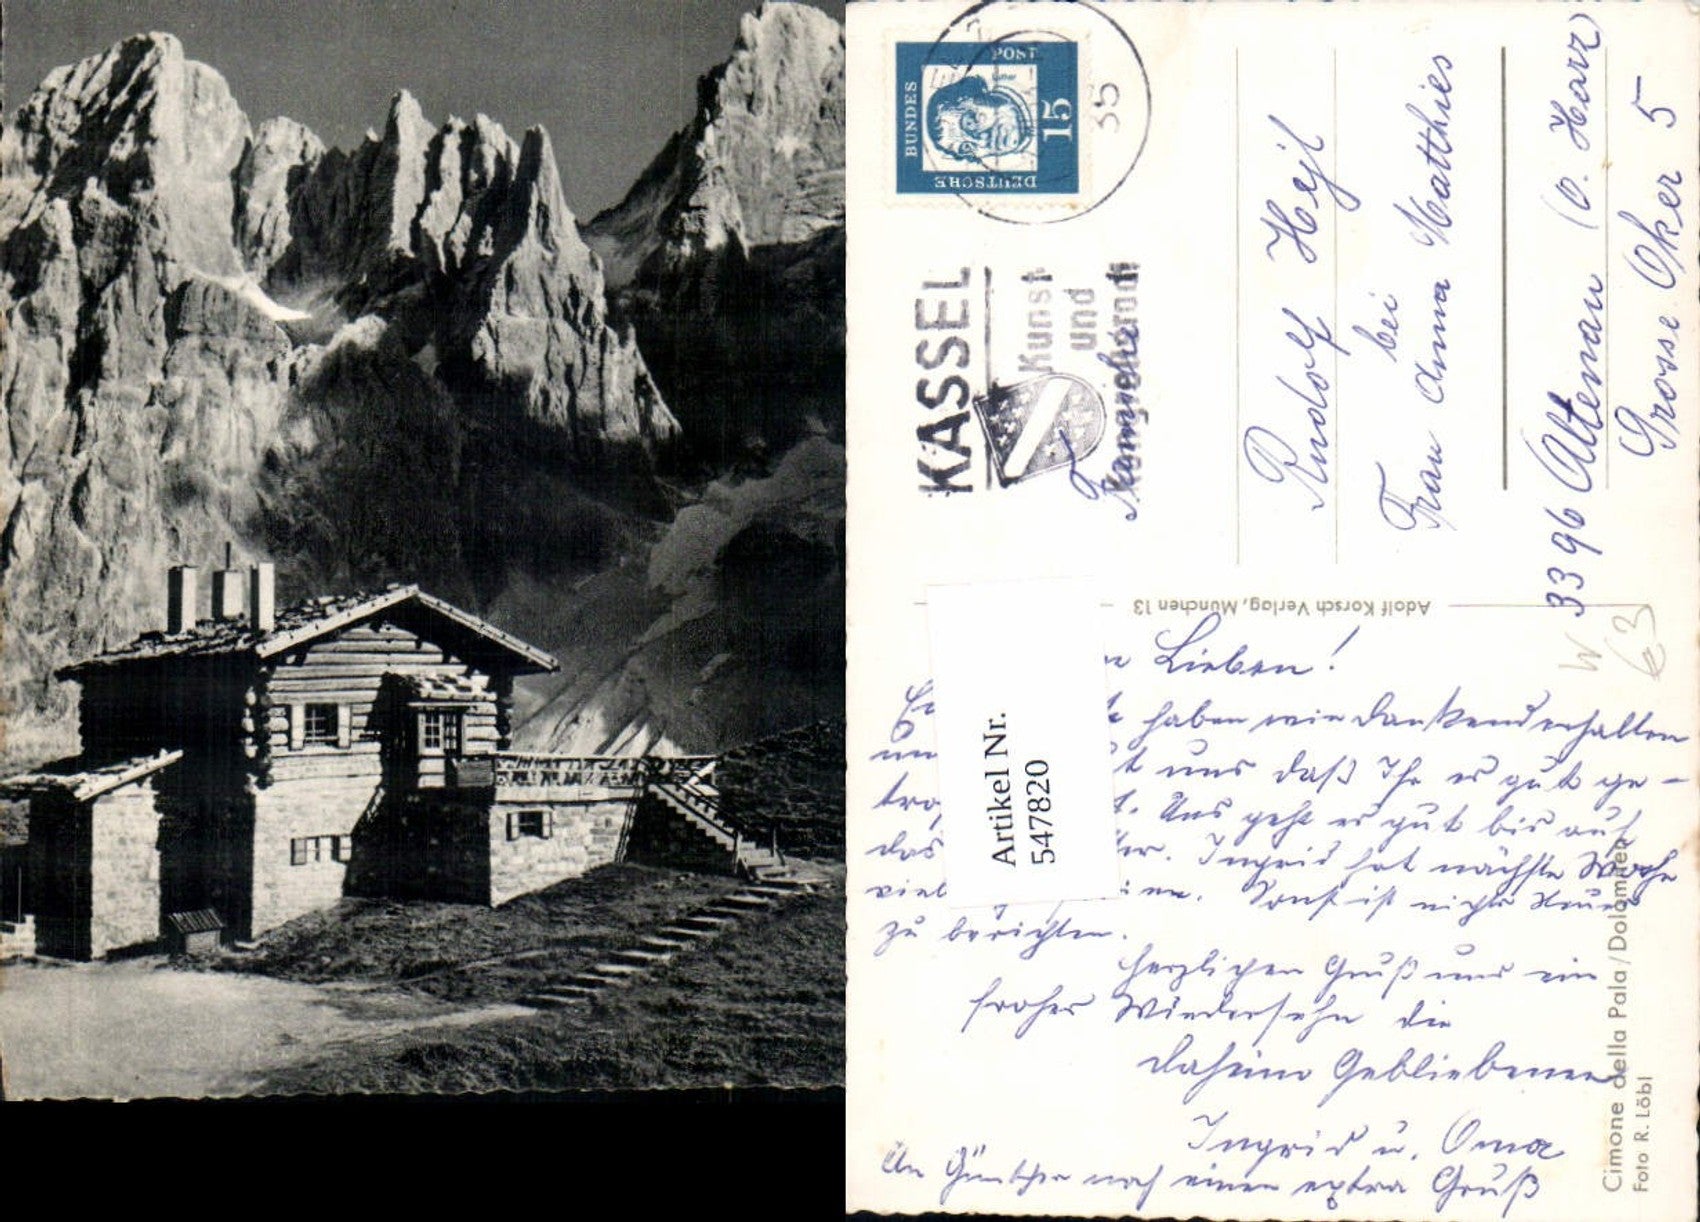 DEUTSCHE
BUNDES
POST
15
Luther
35
KASSEL
Kunst
und
Kongreßstadt
Familie
Rudolf Hejl
bei
Frau Anna Matthies
3396 Altenau (O. Harz)
Grosse Oker 5
Adolf Korsch Verlag, München 13
W
€3
Artikel Nr.
547820
Lieben!
haben wir dankend erhalten
uns daß Ihr es gut ge-
Uns geht es gut bis auf
das Ingrid hat nächste Woche
viel Sonst ist nichts Neues
zu berichten.
Herzlichen Gruß und ein
frohes Wiedersehn die
daheim Gebliebenen
Ingrid u. Oma
An Günther noch einen extra Gruß
Cimone della Pala / Dolomiten
Foto R. Löbl